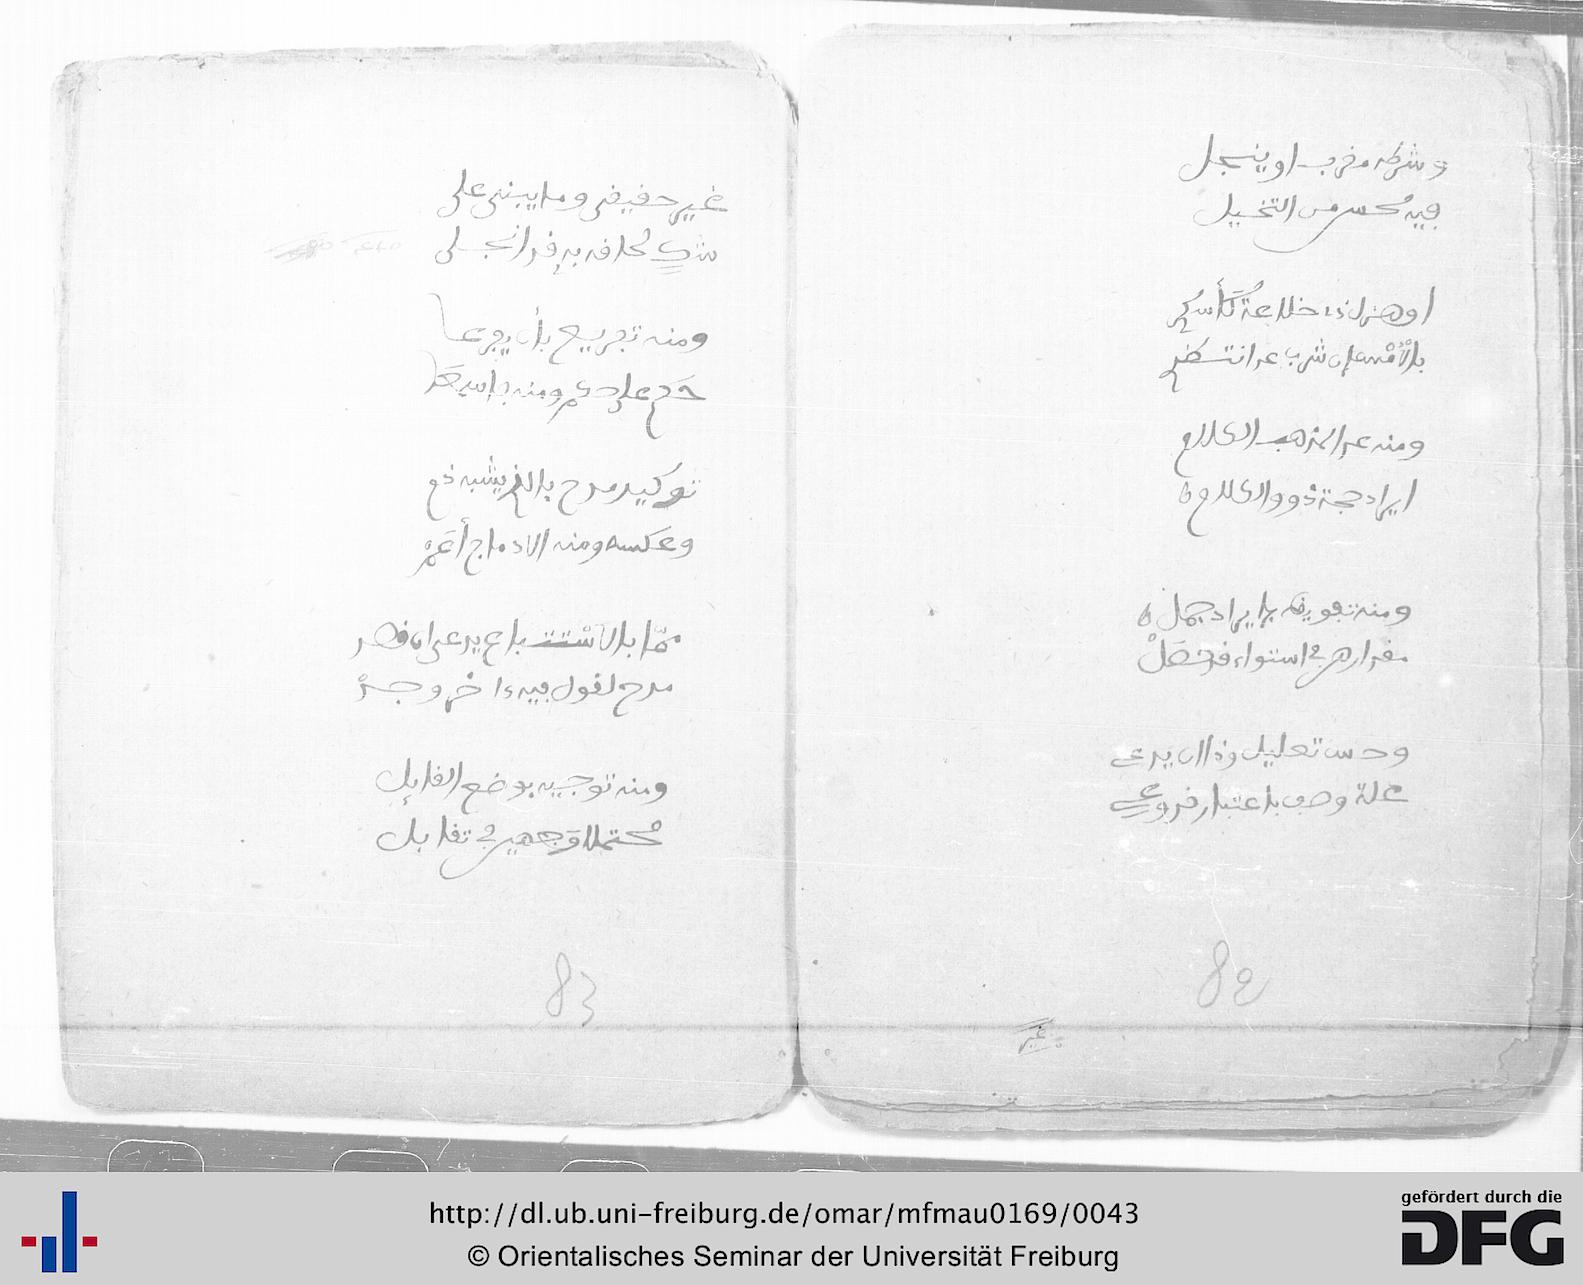 وشرطه مقرب او ينجل
فيه محسن من التخييل
او هزل ذا خلاعة كأسكر
بالأمس إن شرب غد انتظر
ومنه عد المذهب الكلام
ايراد حجة ذوو الكلام
ومنه تفويف بإيراد جمل
مقدارهن في استواء قد حصل
وحسن تعليل وذا ان يدعى
علة وصف باعتبار قد وعى
82
غير
غير حقيقي وما يبنى على
شك لحاقه به قد انجلى
ومنه تفريع بأن يفرعا
حكم على حكم ومنه فاسمعا
توكيد مدح بالذي يشبه ذم
وعكسه ومنه الادماج أعم
مما بالاستتباع يدعى ان قصد
مدح لقول فيه ءاخر وجد
ومنه توجيه بوضع القابل
محتملا وجهين في تقابل
83
http://dl.ub.uni-freiburg.de/omar/mfmau0169/0043
© Orientalisches Seminar der Universität Freiburg
gefördert durch die
DFG